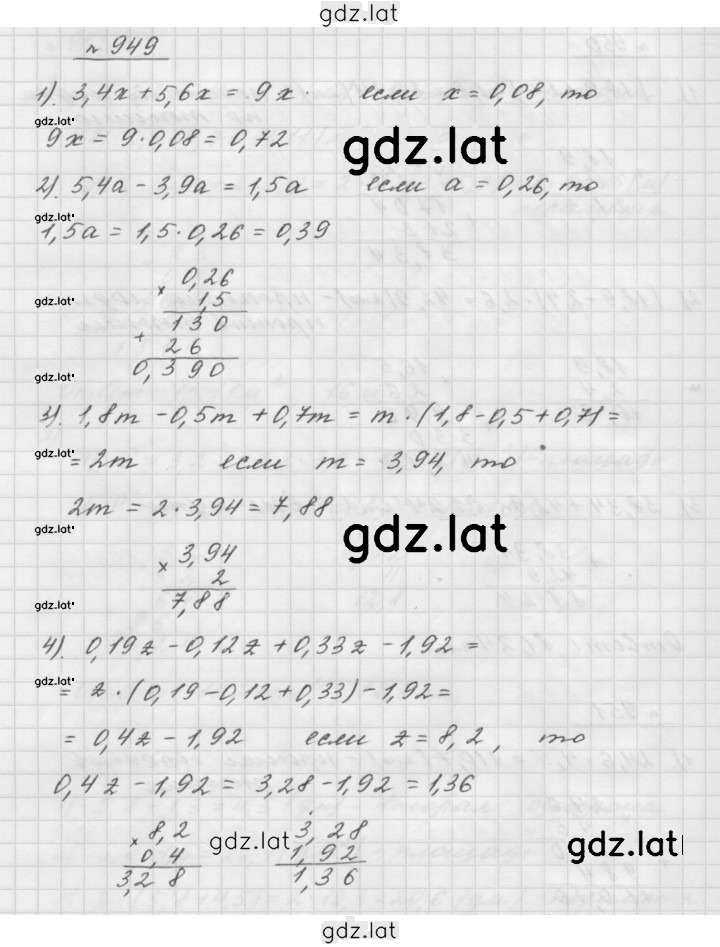 gdz.lat
№ 949
1). 3,4x + 5,6x = 9x. если x = 0,08, то
gdz.lat
9x = 9·0,08 = 0,72
gdz.lat
2). 5,4a - 3,9a = 1,5a если a = 0,26, то
gdz.lat
1,5a = 1,5·0,26 = 0,39
0,26
gdz.lat × 1,5
130
+ 26
gdz.lat 0,390
3). 1,8m - 0,5m + 0,7m = m·(1,8-0,5+0,7) =
gdz.lat = 2m если m = 3,94, то
2m = 2·3,94 = 7,88
gdz.lat gdz.lat
× 3,94
2
gdz.lat 7,88
4). 0,19z - 0,12z + 0,33z - 1,92 =
gdz.lat = z·(0,19-0,12+0,33)-1,92=
= 0,4z - 1,92 если z = 8,2, то
0,4z - 1,92 = 3,28 - 1,92 = 1,36
× 8,2 gdz.lat 3,28
0,4 1,92 gdz.lat
3,28 1,36
gdz.lat